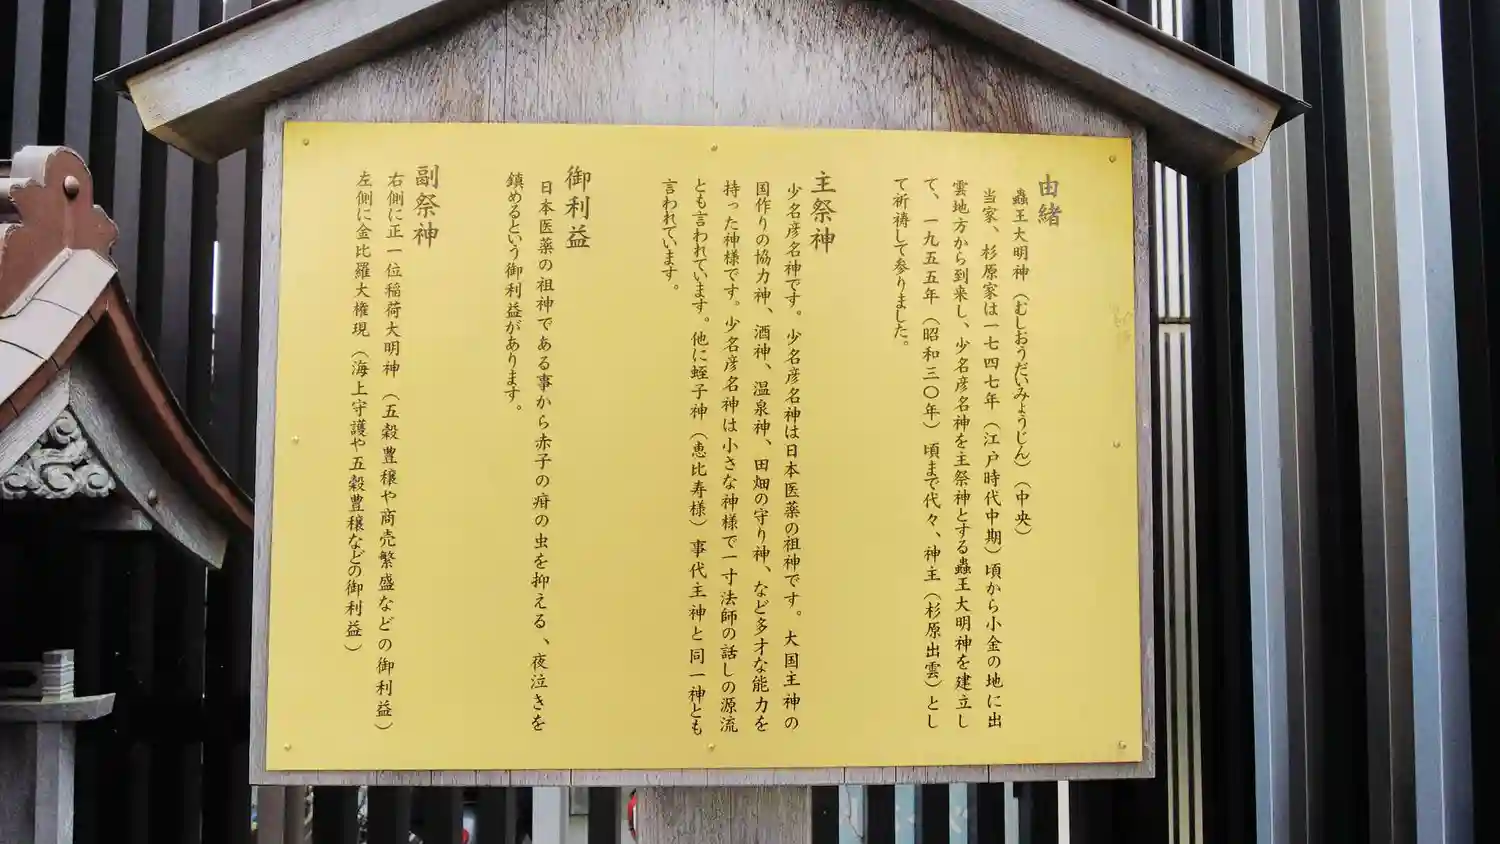 由緒
蟲王大明神（むしおうだいみょうじん）（中央）
当家、杉原家は一七四七年（江戸時代中期）頃から小金の地に出
雲地方から到来し、少名彦名神を主祭神とする蟲王大明神を建立し
て、一九五五年（昭和三〇年）頃まで代々、神主（杉原出雲）とし
て祈祷して参りました。
主祭神
少名彦名神です。少名彦名神は日本医薬の祖神です。大国主神の
国作りの協力神、酒神、温泉神、田畑の守り神、など多才な能力を
持った神様です。少名彦名神は小さな神様で一寸法師の話しの源流
とも言われています。他に蛭子神（恵比寿様）事代主神と同一神とも
言われています。
御利益
日本医薬の祖神である事から赤子の疳の虫を抑える、夜泣きを
鎮めるという御利益があります。
副祭神
右側に正一位稲荷大明神（五穀豊穣や商売繁盛などの御利益）
左側に金比羅大権現（海上守護や五穀豊穣などの御利益）